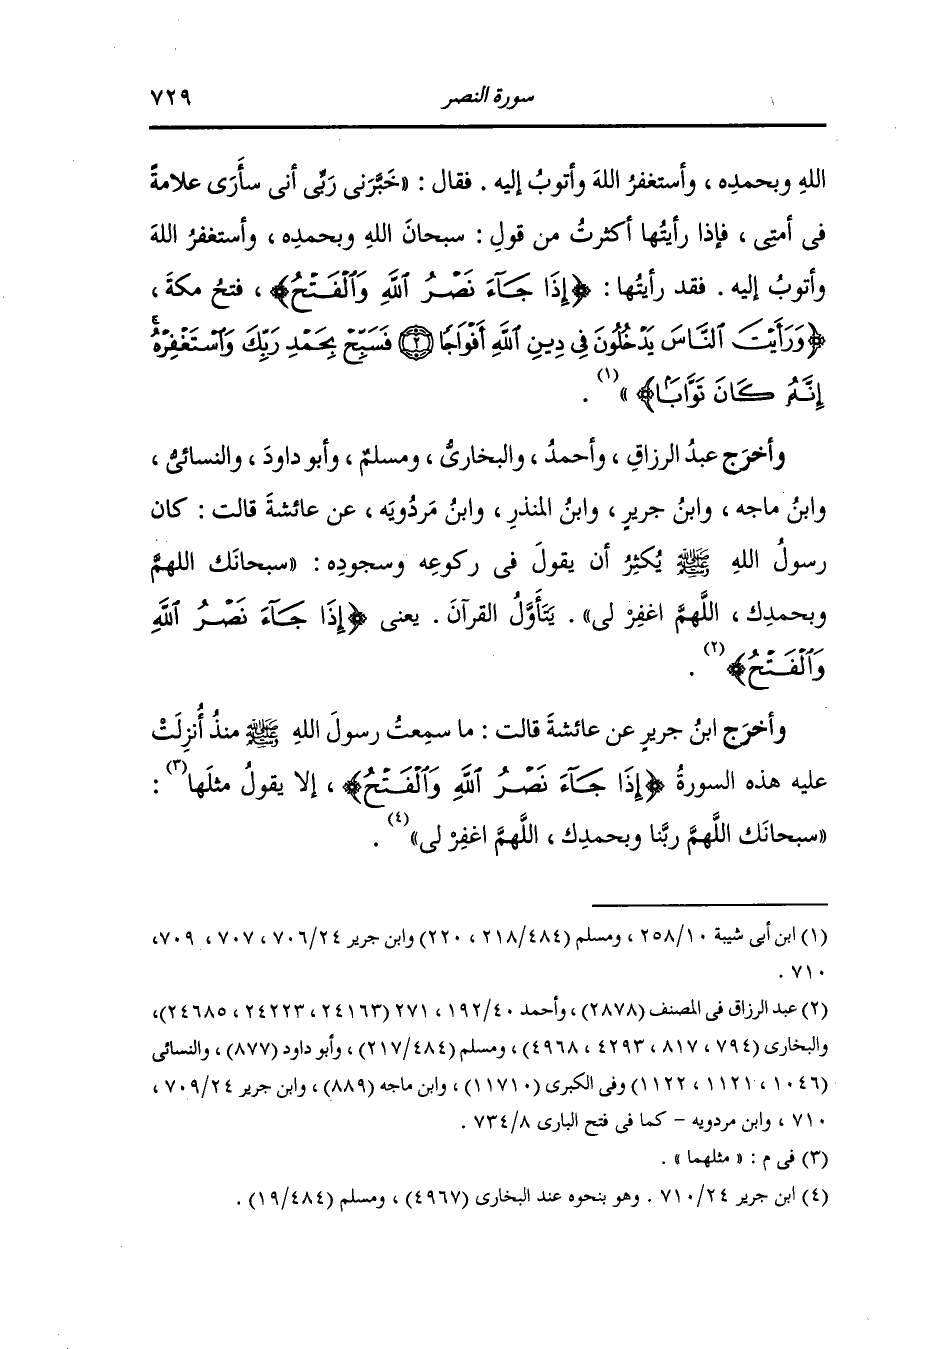 سورة النصر ٧٢٩
اللهِ وبحمدِه ، وأستغفرُ اللهَ وأتوبُ إليه . فقال : «خَبَّرَنى رَبِّى أنى سأَرَى علامةً
فى أمتِى ، فإذا رأيتُها أكثرتُ من قولِ : سبحانَ اللهِ وبحمدِه ، وأستغفرُ اللهَ
وأتوبُ إليه . فقد رأيتُها : ﴿إِذَا جَآءَ نَصْرُ ٱللَّهِ وَٱلْفَتْحُ﴾ ، فتحُ مكةَ ،
﴿وَرَأَيْتَ ٱلنَّاسَ يَدْخُلُونَ فِى دِينِ ٱللَّهِ أَفْوَاجًا ۝٢ فَسَبِّحْ بِحَمْدِ رَبِّكَ وَٱسْتَغْفِرْهُ ۚ
إِنَّهُۥ كَانَ تَوَّابًۢا﴾ »(١) .
وأخرَج عبدُ الرزاقِ ، وأحمدُ ، والبخارىُّ ، ومسلمٌ ، وأبو داودَ ، والنسائىُّ ،
وابنُ ماجه ، وابنُ جريرٍ ، وابنُ المنذرِ ، وابنُ مَردُويَه ، عن عائشةَ قالت : كان
رسولُ اللهِ ﷺ يُكثِرُ أن يقولَ فى ركوعِه وسجودِه : «سبحانَك اللهمَّ
وبحمدِك ، اللَّهمَّ اغفِرْ لى» . يَتَأَوَّلُ القرآنَ . يعنى ﴿إِذَا جَآءَ نَصْرُ ٱللَّهِ
وَٱلْفَتْحُ﴾(٢) .
وأخرَج ابنُ جريرٍ عن عائشةَ قالت : ما سمِعتُ رسولَ اللهِ ﷺ منذُ أُنزِلَتْ
عليه هذه السورةُ ﴿إِذَا جَآءَ نَصْرُ ٱللَّهِ وَٱلْفَتْحُ﴾ ، إلا يقولُ مثلَها(٣) :
«سبحانَك اللَّهمَّ ربَّنا وبحمدِك ، اللَّهمَّ اغفِرْ لى»(٤) .
(١) ابن أبى شيبة ٢٥٨/١٠ ، ومسلم (٢١٨/٤٨٤ ، ٢٢٠) وابن جرير ٧٠٦/٢٤ ، ٧٠٧ ، ٧٠٩،
٧١٠ .
(٢) عبد الرزاق فى المصنف (٢٨٧٨) ، وأحمد ١٩٢/٤٠ ، ٢٧١ (٢٤١٦٣، ٢٤٢٢٣ ، ٢٤٦٨٥)،
والبخارى (٧٩٤ ، ٨١٧ ، ٤٢٩٣ ، ٤٩٦٨) ، ومسلم (٢١٧/٤٨٤) ، وأبو داود (٨٧٧) ، والنسائى
(١٠٤٦ ، ١١٢١ ، ١١٢٢) وفى الكبرى (١١٧١٠) ، وابن ماجه (٨٨٩) ، وابن جرير ٧٠٩/٢٤ ،
٧١٠ ، وابن مردويه – كما فى فتح البارى ٧٣٤/٨ .
(٣) فى م : « مثلهما » .
(٤) ابن جرير ٧١٠/٢٤ . وهو بنحوه عند البخارى (٤٩٦٧) ، ومسلم (١٩/٤٨٤) .